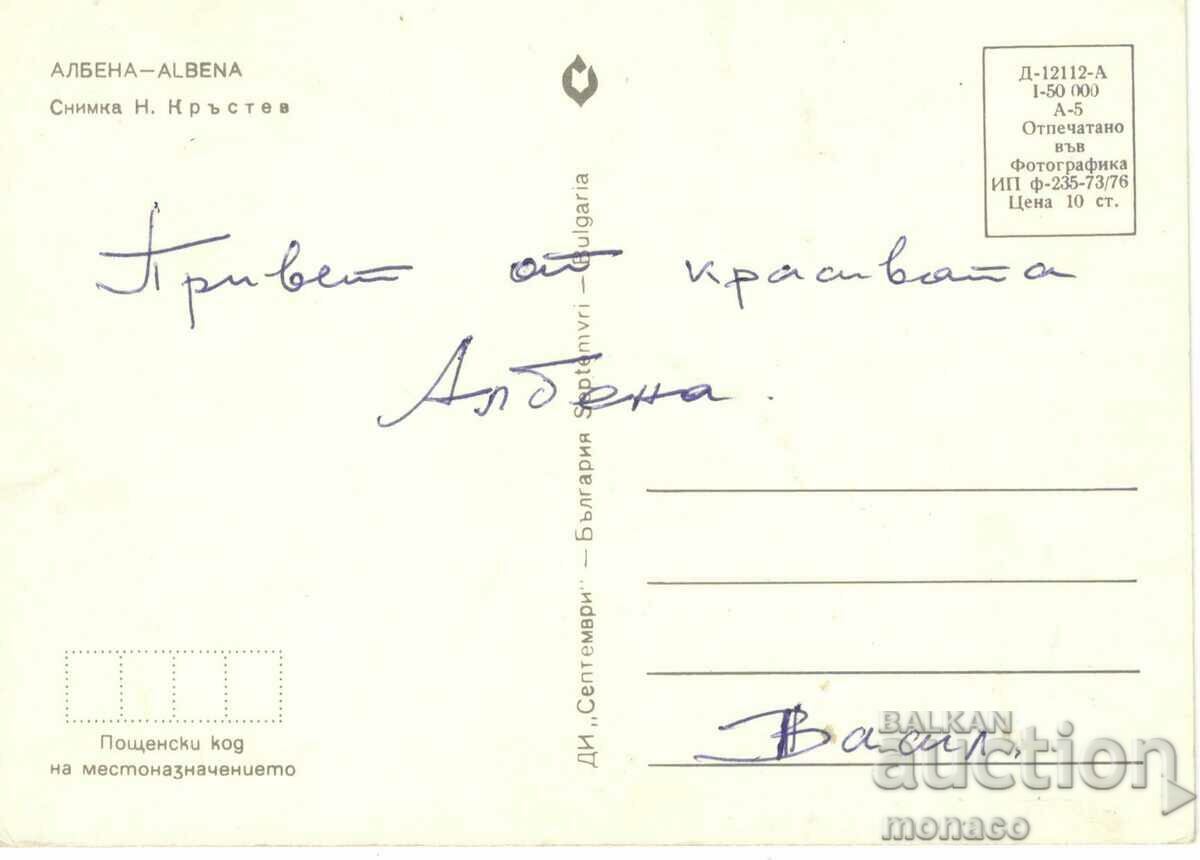 АЛБЕНА—ALBENA
Снимка Н. Кръстев
Д-12112-А
I-50 000
А-5
Отпечатано
във
Фотографика
ИП ф-235-73/76
Цена 10 ст.
Привет от красивата
Албена.
ДИ „Септември" — България Septemvri — Bulgaria
Васил
Пощенски код
на местоназначението
BALKAN
auction
monaco